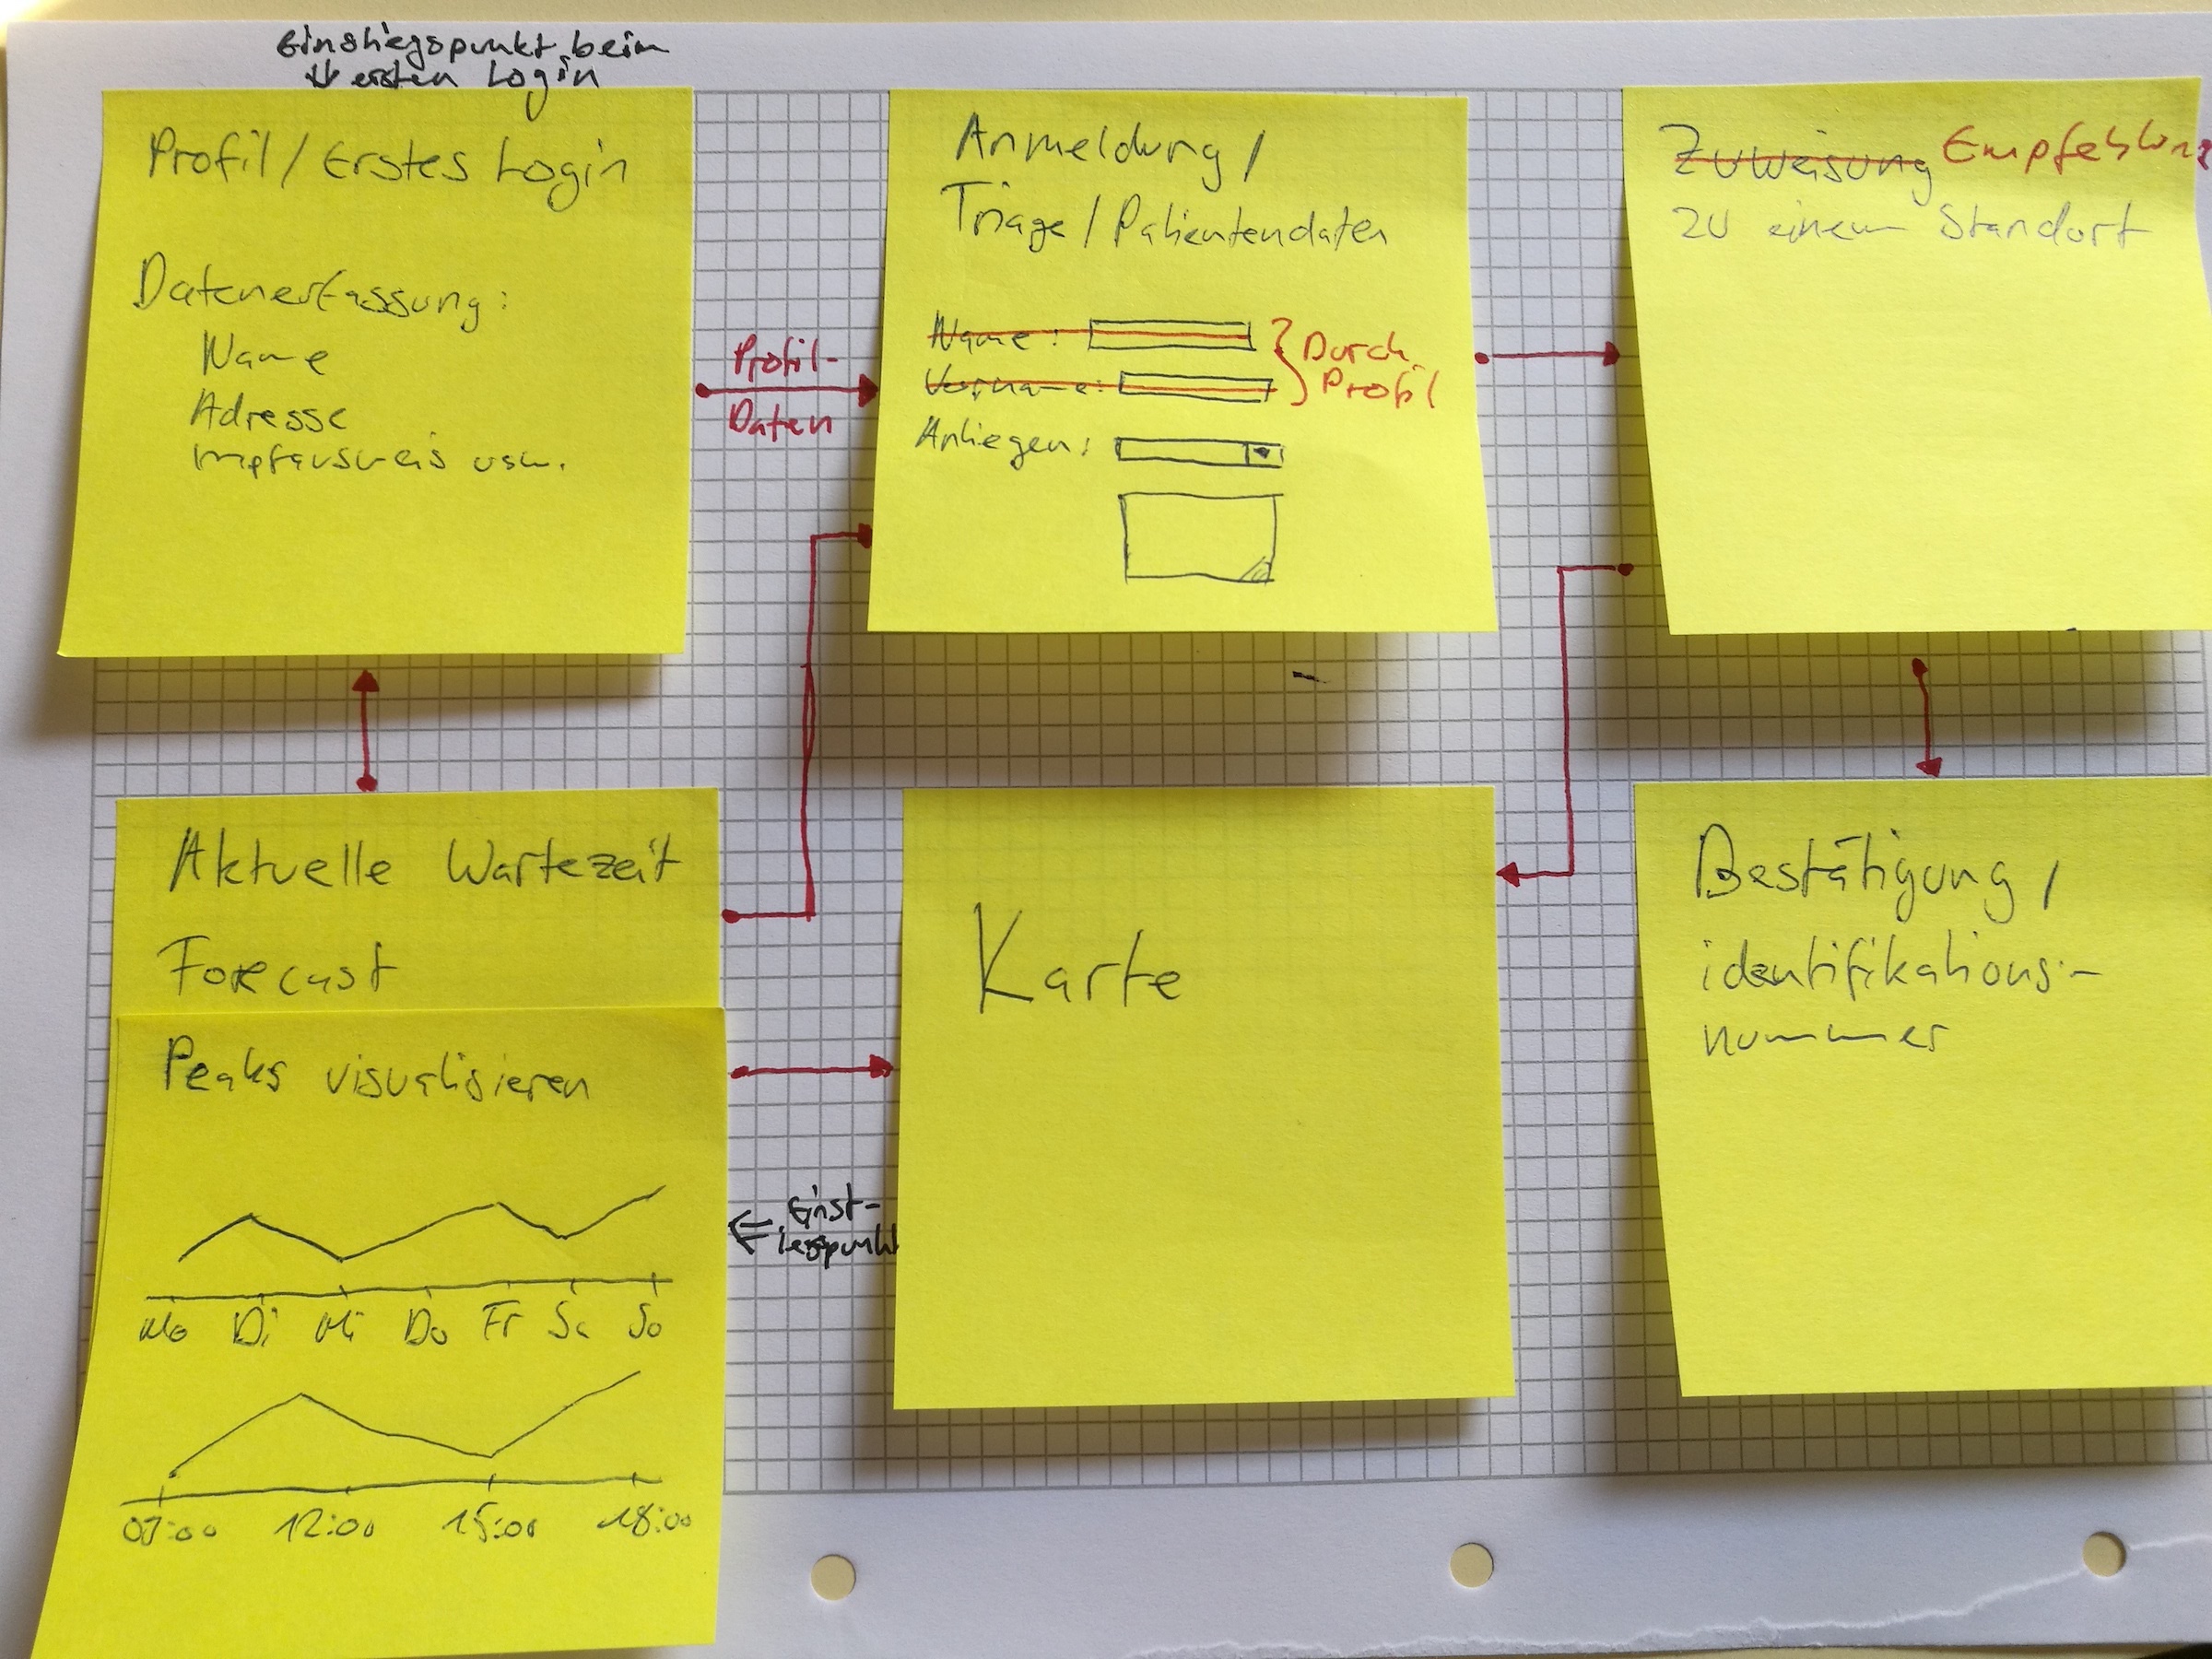 Einstiegspunkt beim
ersten Login
Profil / Erstes Login
Datenerfassung:
Name
Adresse
Impfausweis usw.
Profil-
Daten
Anmeldung /
Triage / Patientendaten
Name:
Vorname:
Durch
Profil
Anliegen:
Zuweisung Empfehlung
zu einem Standort
Aktuelle Wartezeit
Forecast
Peaks visualisieren
Mo Di Mi Do Fr Sa So
07:00 12:00 15:00 18:00
Einst-
iegspunkt
Karte
Bestätigung /
identifikations-
nummer